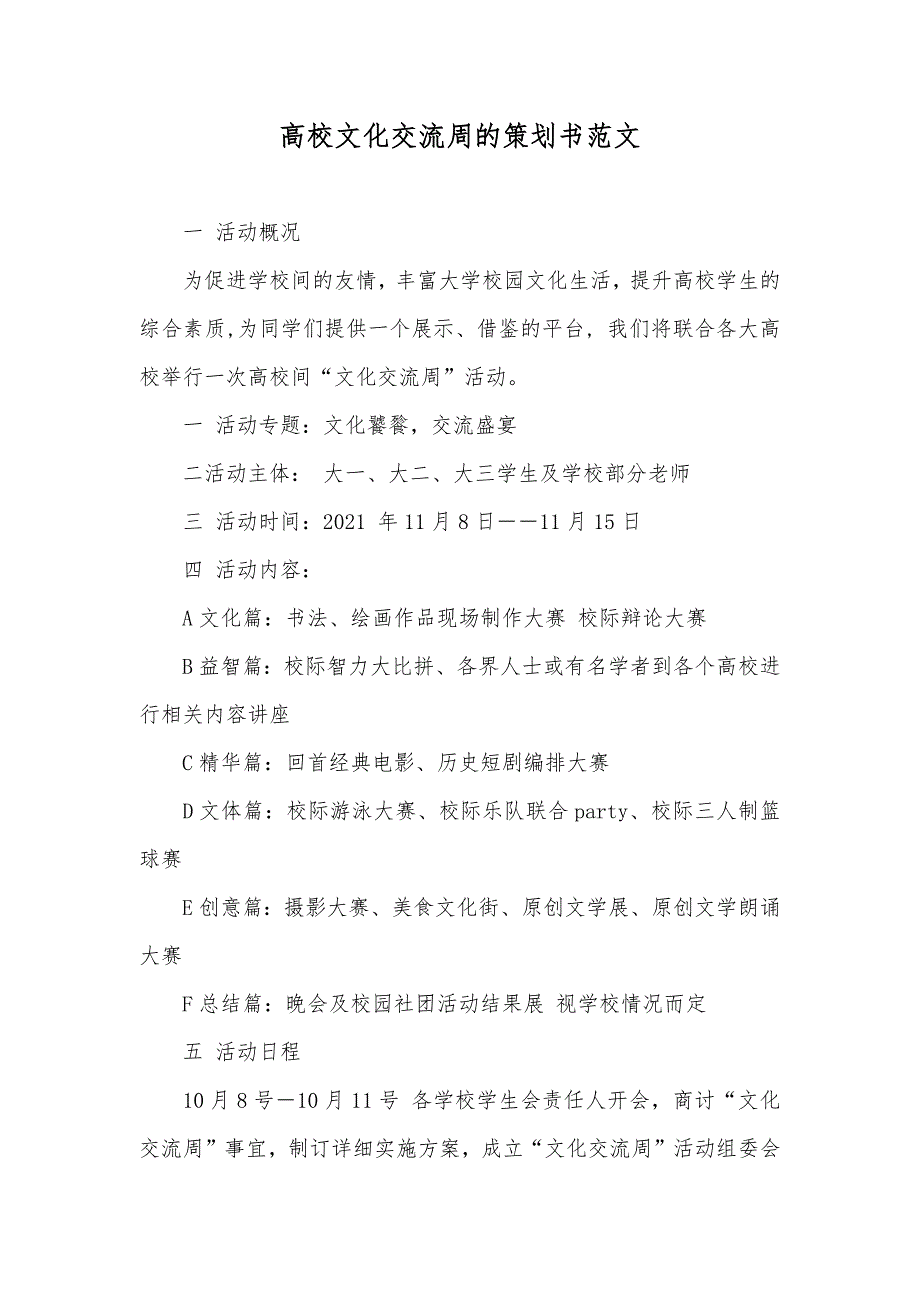 高校文化交流周的策划书范文
一 活动概况
为促进学校间的友情，丰富大学校园文化生活，提升高校学生的
综合素质,为同学们提供一个展示、借鉴的平台, 我们将联合各大高
校举行一次高校间“文化交流周”活动。
一 活动专题：文化饕餮，交流盛宴
二活动主体： 大一、大二、大三学生及学校部分老师
三 活动时间：2021 年11月8日－－11月15日
四 活动内容：
A文化篇：书法、绘画作品现场制作大赛 校际辩论大赛
B益智篇：校际智力大比拼、各界人士或有名学者到各个高校进
行相关内容讲座
C精华篇：回首经典电影、历史短剧编排大赛
D文体篇：校际游泳大赛、校际乐队联合party、校际三人制篮
球赛
E创意篇：摄影大赛、美食文化街、原创文学展、原创文学朗诵
大赛
F总结篇：晚会及校园社团活动结果展 视学校情况而定
五 活动日程
10月8号－10月11号 各学校学生会责任人开会，商讨“文化
交流周”事宜，制订详细实施方案，成立“文化交流周”活动组委会